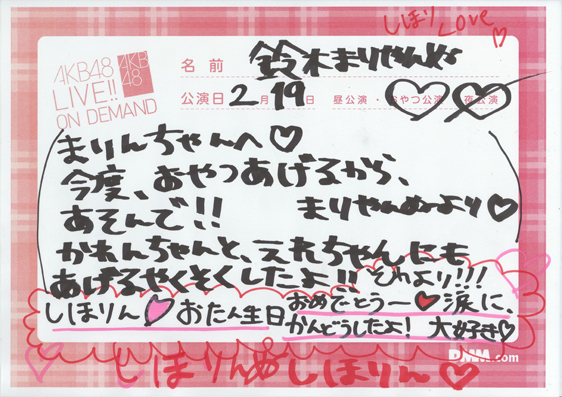 しほり Love ♡
AKB48
LIVE!!
ON DEMAND
AKB
48
名前 鈴木まりやんぬ
公演日 2月19日 昼公演・おやつ公演・夜公演
まりんちゃんへ♡
今度、おやつあげるから、
あそんで!! まりやんぬより♡
かれんちゃんと、えれちゃんにも
あげるやくそくしたよ!! それより!!!
しほりん♡おたん生日おめでとうー♥涙に、
かんどうしたよ! 大好き♡
DMM.com
しほりんぬしほりん♡